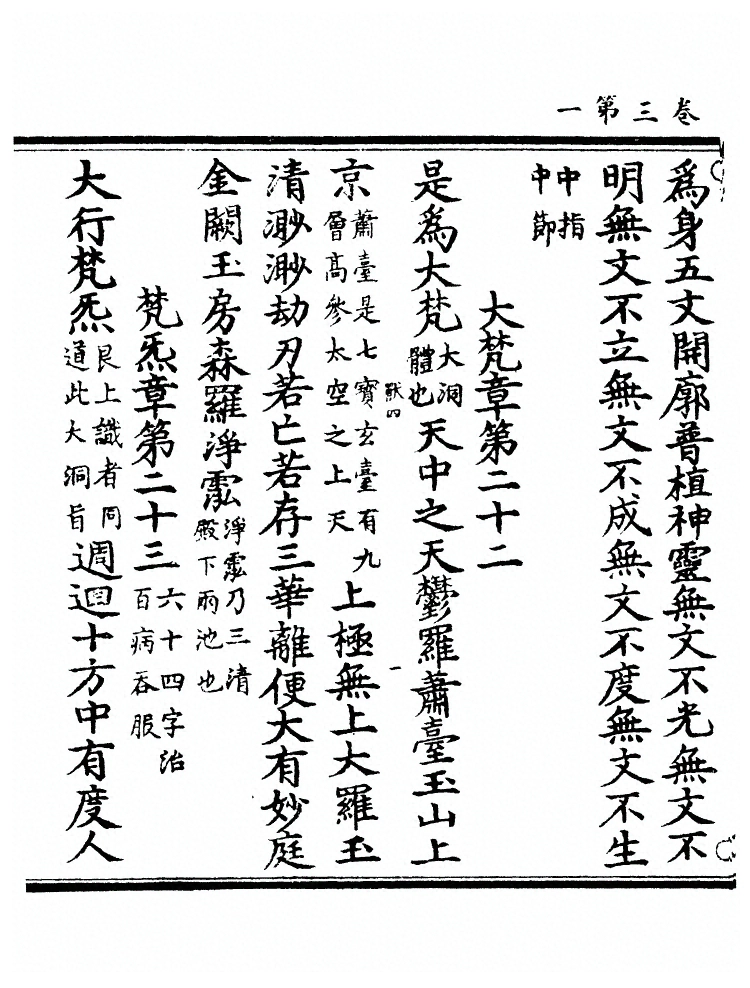 卷三第一
為身五文開廓普植神靈無文不光無文不
明無文不立無文不成無文不度無文不生
中指
中節
大梵章第二十二
是為大梵大洞體也天中之天鬱羅蕭臺玉山上
獸四
一
京蕭臺是七寶玄臺有九層高參太空之上天上極無上大羅玉
清渺渺劫刃若亡若存三華離便大有妙庭
金闕玉房森羅淨泓淨泓乃三清殿下雨池也
梵炁章第二十三六十四字治百病吞服
大行梵炁艮上識者同道此大洞旨週迴十方中有度人